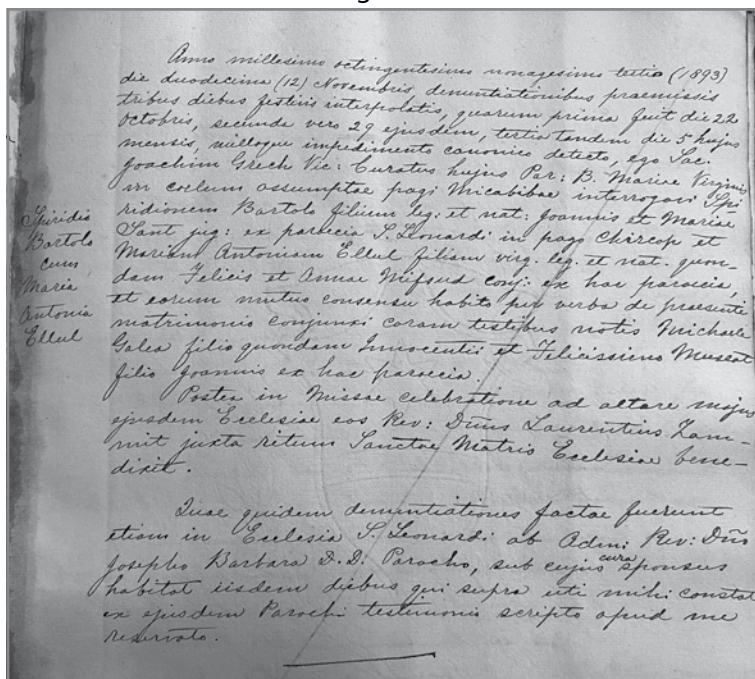 Anno millesimo octingentesimo nonagesimo tertio (1893)
die duodecima (12) Novembris, denuntiationibus praemissis
tribus diebus festivis interpolatis, quarum prima fuit die 22
Octobris, secunda vero 29 ejusdem, tertia tandem die 5 hujus
mensis, nulloque impedimento canonico detecto, ego Sac.
Joachim Grech Vic: Curatus hujus Par: B. Mariae Virginis
in coelum assumptae pagi Micabibae interrogavi Spi-
ridionem Bartolo filium leg: et nat: Joannis et Mariae
Sant jug: ex paroecia S. Leonardi in pago Chircop et
Mariam Antoniam Ellul filiam virg. leg. et nat. quon-
dam Felicis et Annae Mifsud conj: ex hac paroecia,
et eorum mutuo consensu habito per verba de praesenti
matrimonio conjunxi coram testibus notis Michaele
Galea filio quondam Innocentii et Felicissimo Muscat
filio Joannis ex hac paroecia.
Postea in Missae celebratione ad altare majus
ejusdem Ecclesiae eos Rev: Dñus Laurentius Zam-
mit juxta ritum Sanctae Matris Ecclesiae bene-
dixit.
Spiridio
Bartolo
cum
Maria
Antonia
Ellul
Quae quidem denuntiationes factae fuerunt
etiam in Ecclesia S. Leonardi ab Adm: Rev: Dño
Josepho Barbara D.D. Parocho, sub cujus cura sponsus
habitat iisdem diebus qui supra uti mihi constat
ex ejusdem Parochi testimonio scripto apud me
reservato.